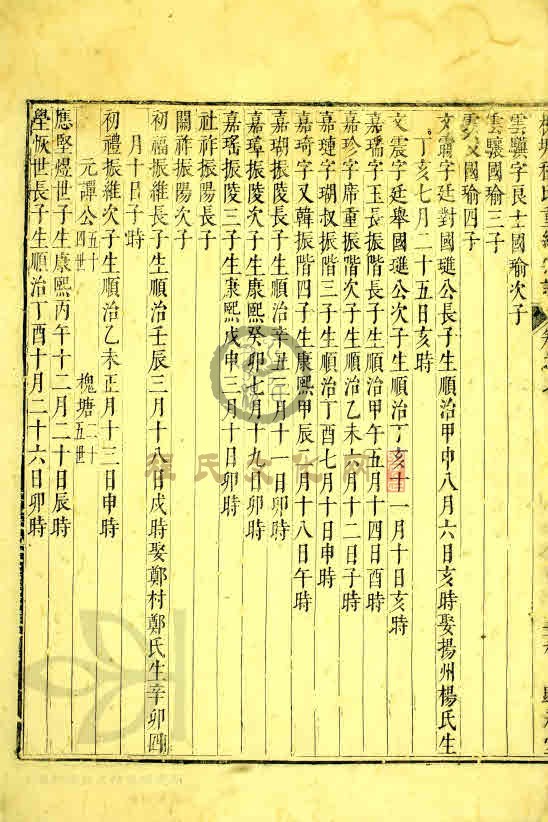 雲驥字良士國瑜次子
雲驤國瑜三子
國瑜四子
文肅字廷對國璡公長子生順治甲申八月六日亥時娶揚州楊氏生
丁亥七月二十五日亥時
文震字廷舉國璡公次子生順治丁亥十一月十日亥時
嘉瑞字玉長振階長子生順治甲午五月十四日酉時
嘉珍字席重振階次子生順治乙未六月十二日子時
嘉璉字瑚叔振階三子生順治丁酉七月十日申時
嘉琦字又韓振階四子生康熙甲辰八月十八日午時
嘉瑚振陵長子生順治辛丑二月十一日卯時
嘉璋振陵次子生康熙癸卯七月十九日卯時
嘉瑤振陵三子生康熙戊申三月十日卯時
社祚振陽次子
關祚振陽次子
初福振維長子生順治壬辰三月十八日戌時娶鄭村鄭氏生辛卯四
月十日子時
初禮振維次子生順治乙未正月十三日申時
元譚公五十四世 槐塘二十五世
應堅煜世子生康熙丙午十二月二十日辰時
世長子生順治丁酉十月二十六日卯時
程氏文化网